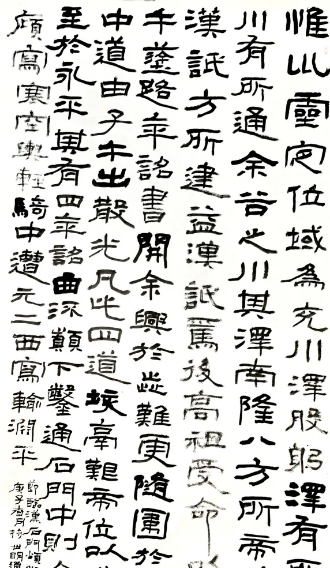 惟巛靈定位域為充川澤股躬澤有
川有所通余谷之川其澤南隆八方所帝
漢詆方所建益漢詆焉後高祖受命
午塗路年詔書開余興於此難更隨圍於
中道由子午出散光凡此四道垓鬲艱帝位以
至於永平其有四年詔曲流顛下鑿通石門中則
廎寫寒空輿輕騎中遭元二西寫輸淵平
節臨漢石門頌
庚子